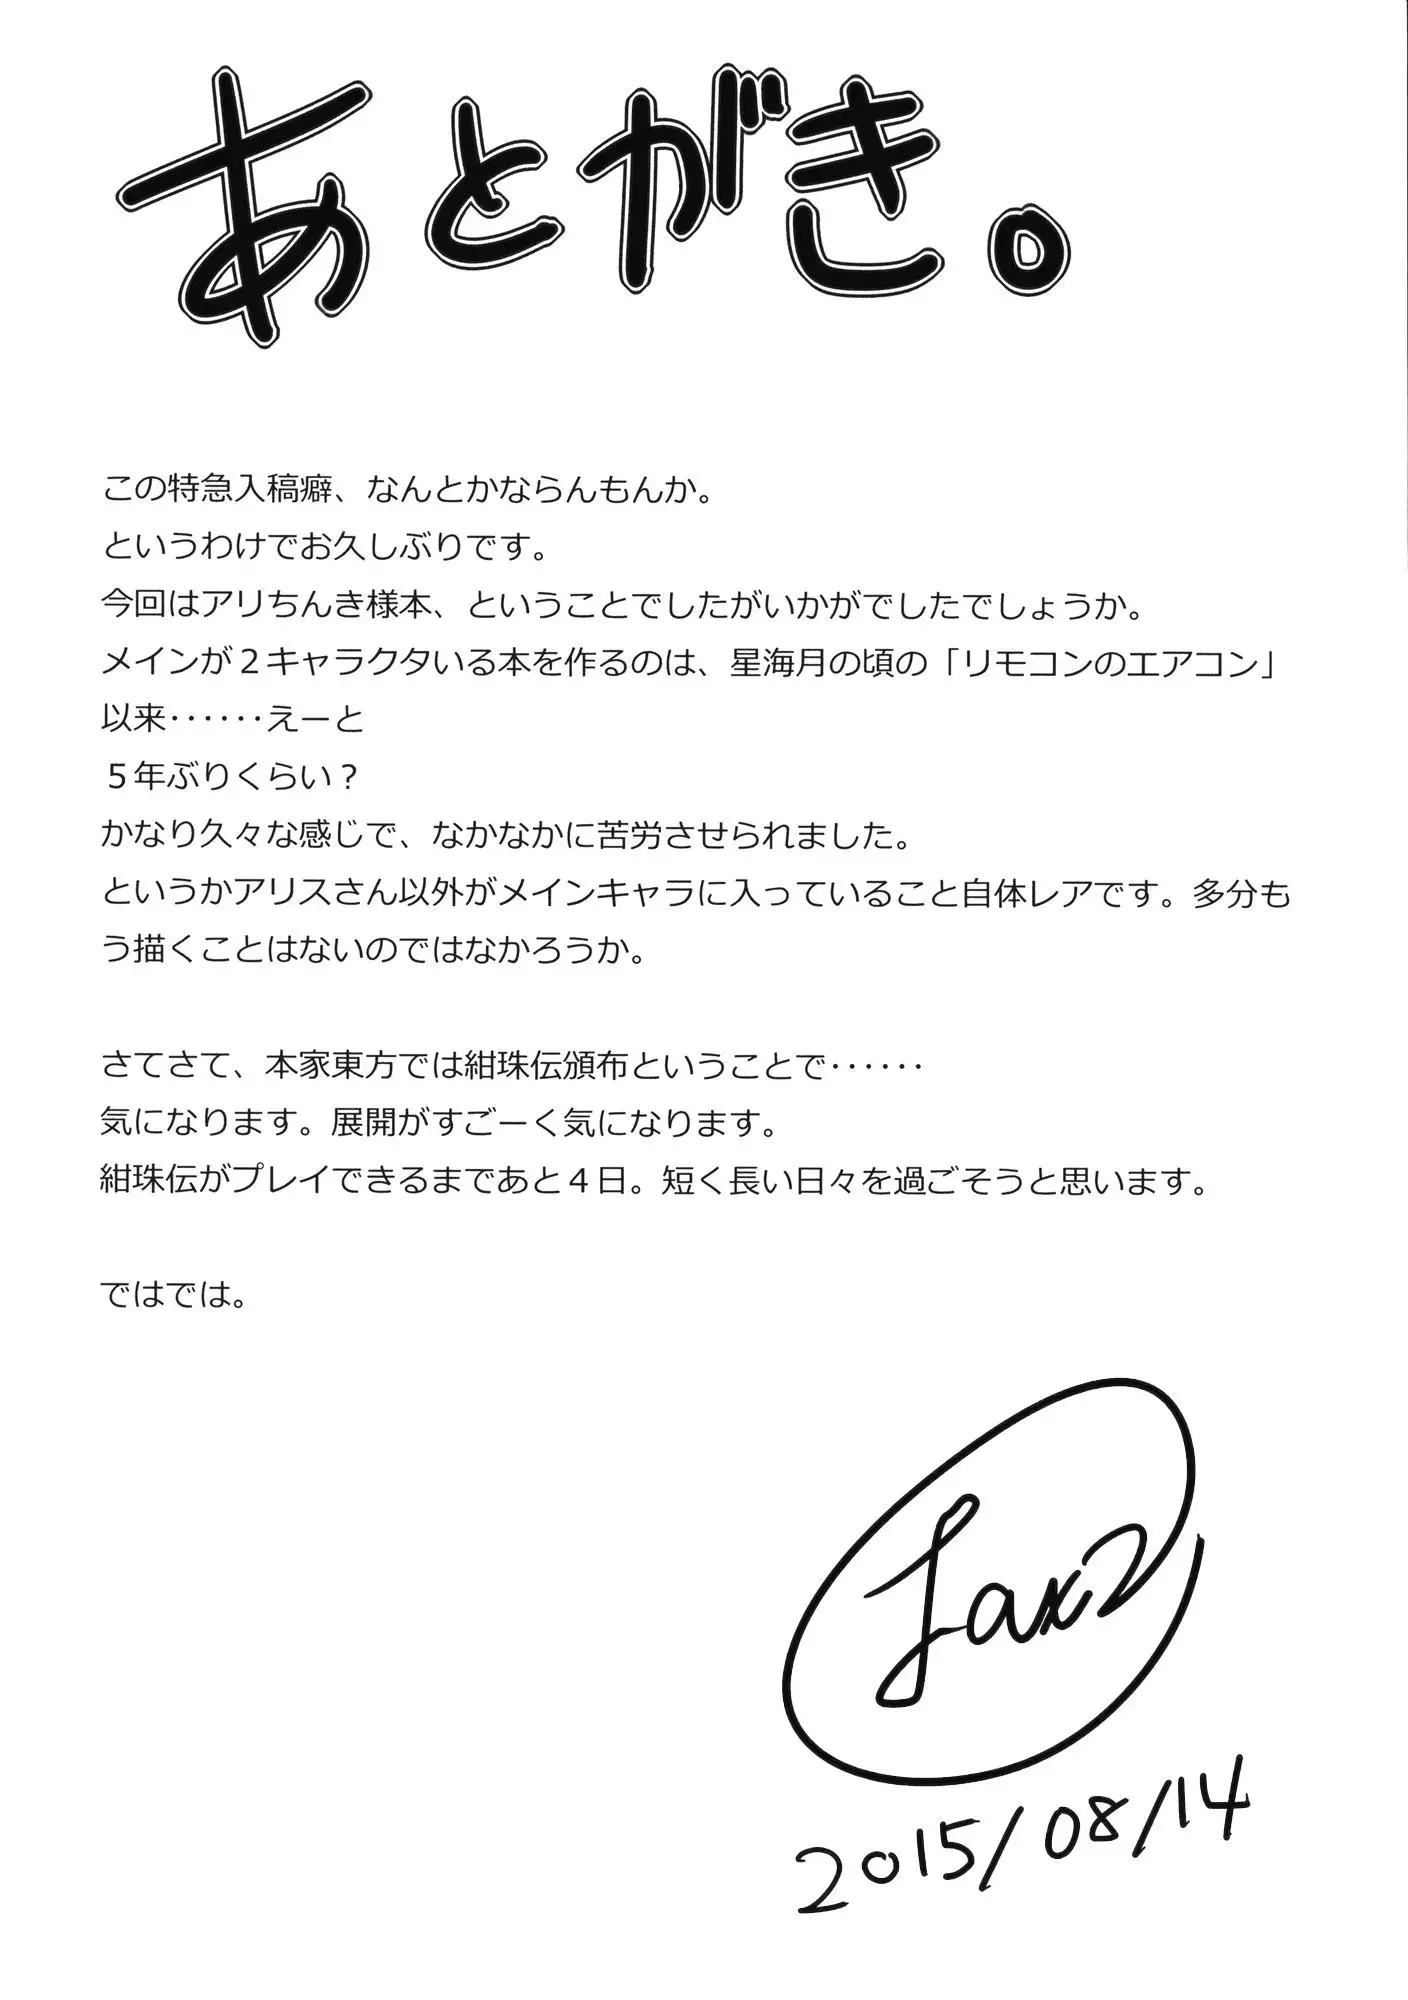 あとがき。
この特急入稿癖、なんとかならんもんか。
というわけでお久しぶりです。
今回はアリちんき様本、ということでしたがいかがでしたでしょうか。
メインが２キャラクタいる本を作るのは、星海月の頃の「リモコンのエアコン」
以来‥‥‥えーと
５年ぶりくらい？
かなり久々な感じで、なかなかに苦労させられました。
というかアリスさん以外がメインキャラに入っていること自体レアです。多分も
う描くことはないのではなかろうか。
さてさて、本家東方では紺珠伝頒布ということで‥‥‥
気になります。展開がすごーく気になります。
紺珠伝がプレイできるまであと４日。短く長い日々を過ごそうと思います。
ではでは。
fax2
2015/08/14